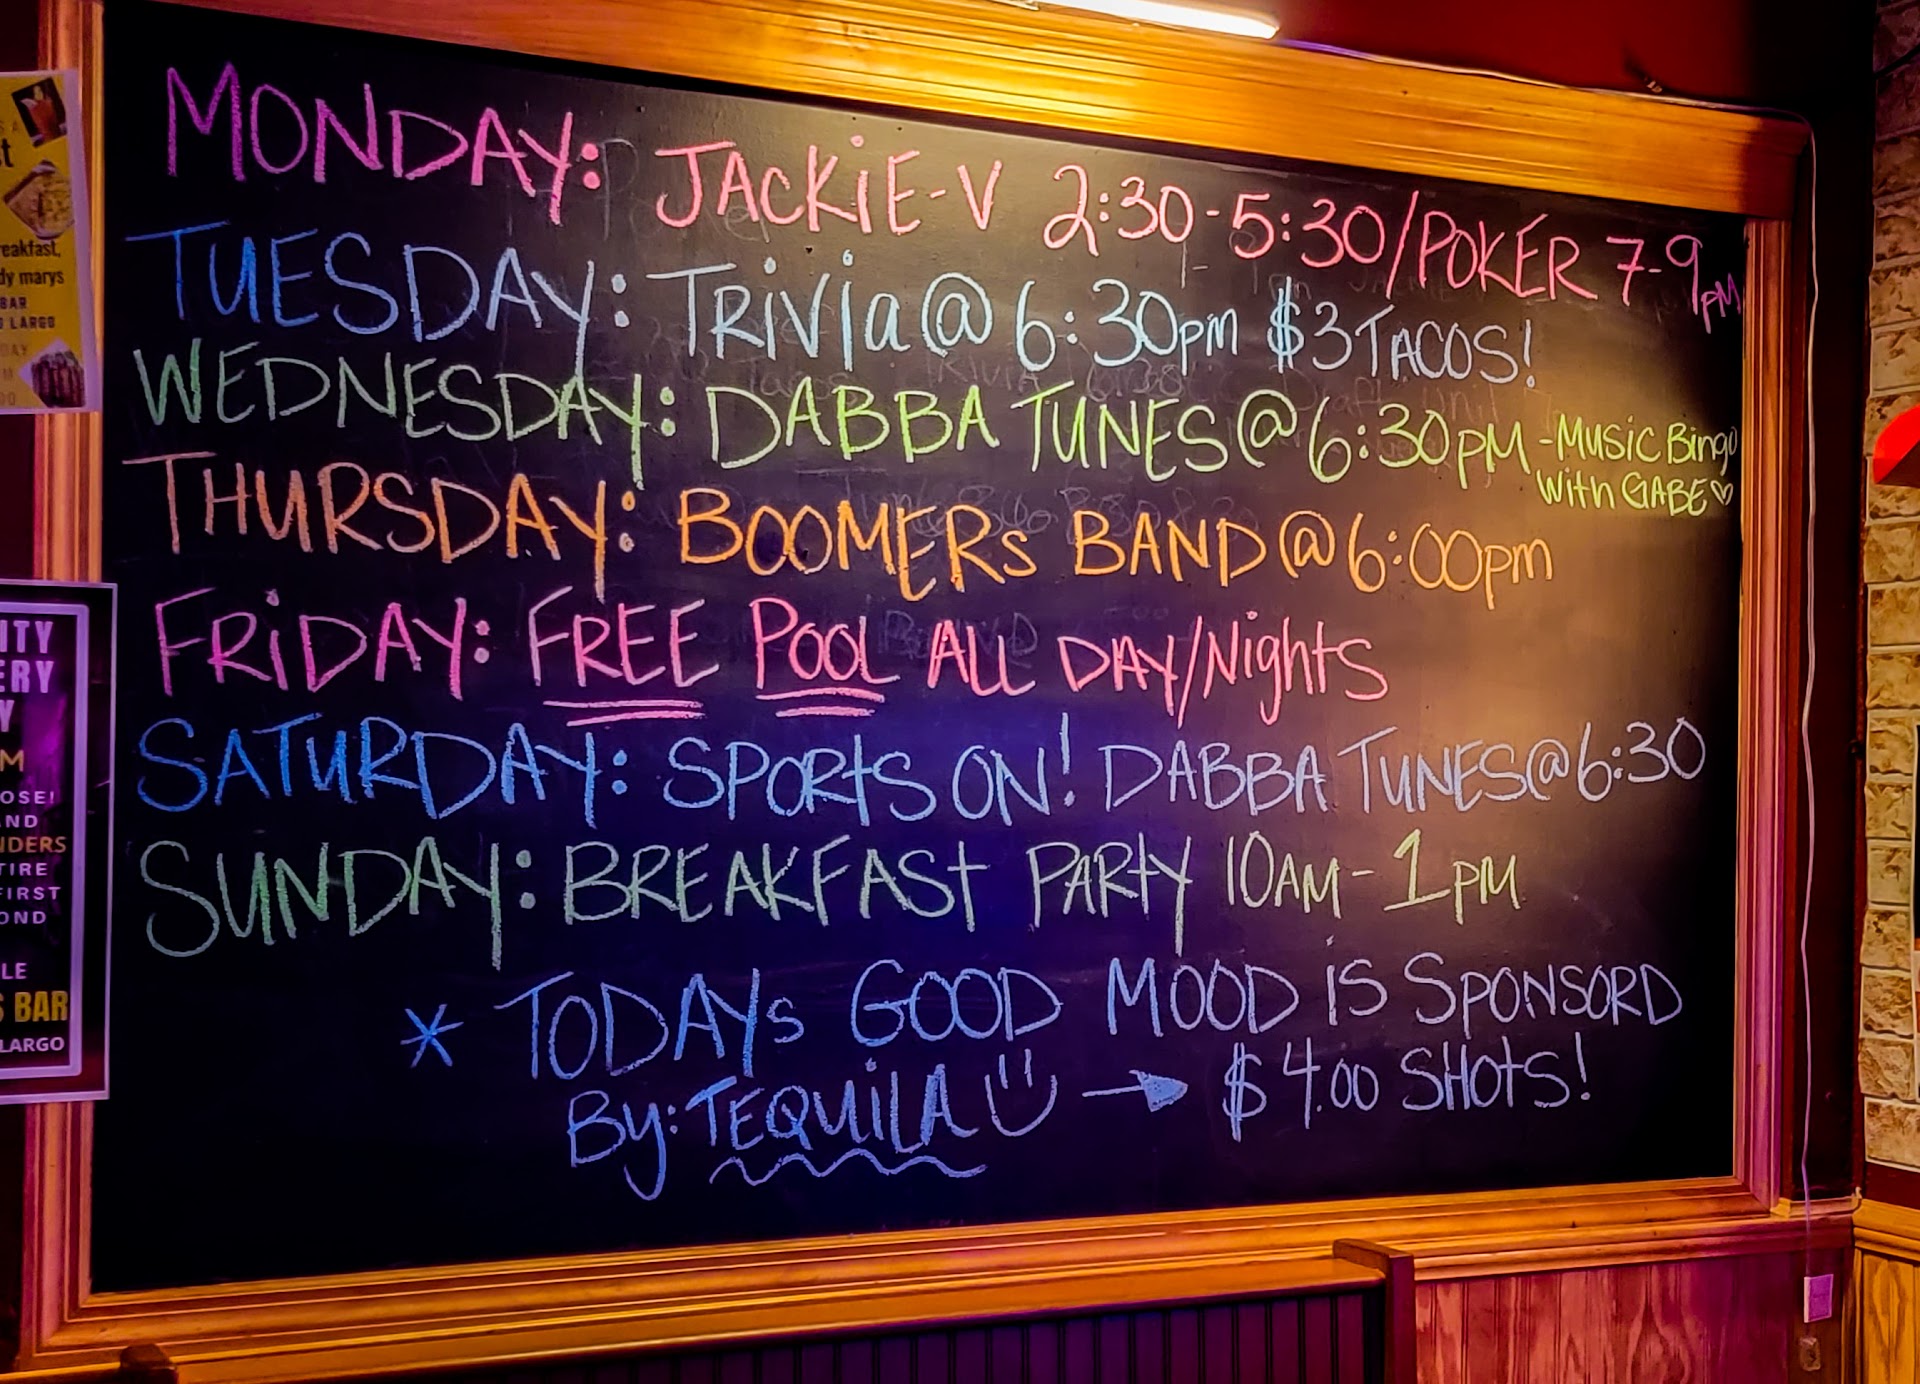 MONDAY: JACKiE-V 2:30-5:30/POKER 7-9PM
TUESDAY: TRiVia@6:30pm $3 TACOS!
WEDNESDAY: DABBA TUNES@6:30PM-Music Bingo
With GABE♡
THURSDAY: BOOMERs BAND@6:00pm
FRiDAY: FREE POOL ALL DAY/Nights
SATURDAY: SPORtS ON! DABBA TUNES@6:30
SUNDAY: BREAKFASt PARtY 10AM-1PM
* TODAYs GOOD MOOD iS SPONSORD
By: TEQUiLA → $4.00 SHOtS!
eakfast,
dy marys
BAR
LARGO
ITY
ERY
Y
M
OSE!
ND
NDERS
TIRE
FIRST
OND
LE
S BAR
LARGO